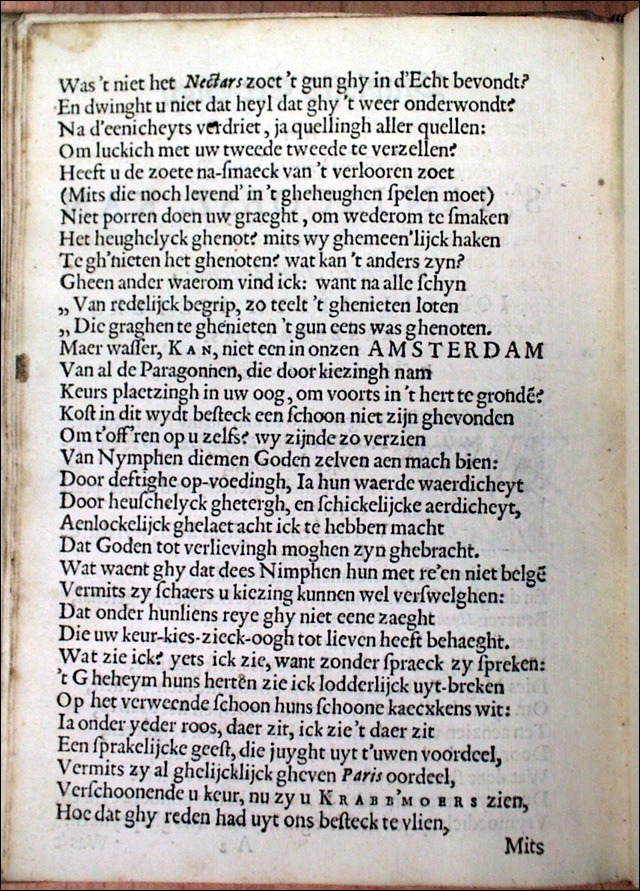 Was 't niet het Nectars zoet 't gun ghy in d'Echt bevondt?
En dwinght u niet dat heyl dat ghy 't weer onderwondt?
Na d'eenicheyts verdriet, ja quellingh aller quellen:
Om luckich met uw tweede tweede te verzellen?
Heeft u de zoete na-smaeck van 't verlooren zoet
(Mits die noch levend' in 't gheheughen spelen moet)
Niet porren doen uw graeght, om wederom te smaken
Het heughelyck ghenot? mits wy ghemeen'lijck haken
Te gh'nieten het ghenoten? wat kan 't anders zyn?
Gheen ander waerom vind ick: want na alle schyn
„ Van redelijck begrip, zo teelt 't ghenieten loten
„ Die graghen te ghenieten 't gun eens was ghenoten.
Maer wasser, KAN, niet een in onzen AMSTERDAM
Van al de Paragonnen, die door kiezingh nam
Keurs plaetzingh in uw oog, om voorts in 't hert te grondē?
Kost in dit wydt besteck een schoon niet zijn ghevonden
Om t'off'ren op u zelfs? wy zijnde zo verzien
Van Nymphen diemen Goden zelven aen mach bien:
Door deftighe op-voedingh, Ia hun waerde waerdicheyt
Door heuschelyck ghetergh, en schickelijcke aerdicheyt,
Aenlockelijck ghelaet acht ick te hebben macht
Dat Goden tot verlievingh moghen zyn ghebracht.
Wat waent ghy dat dees Nimphen hun met re'en niet belgē
Vermits zy schaers u kiezing kunnen wel verswelghen:
Dat onder hunliens reye ghy niet eene zaeght
Die uw keur-kies-zieck-oogh tot lieven heeft behaeght.
Wat zie ick? yets ick zie, want zonder spraeck zy spreken:
't Gheheym huns herten zie ick lodderlijck uyt-breken
Op het verweende schoon huns schoone kaecxkens wit:
Ia onder yeder roos, daer zit, ick zie 't daer zit
Een sprakelijcke geest, die juyght uyt t'uwen voordeel,
Vermits zy al ghelijcklijck gheven Paris oordeel,
Verschoonende u keur, nu zy u KRABB'MOERS zien,
Hoe dat ghy reden had uyt ons besteck te vlien,
Mits